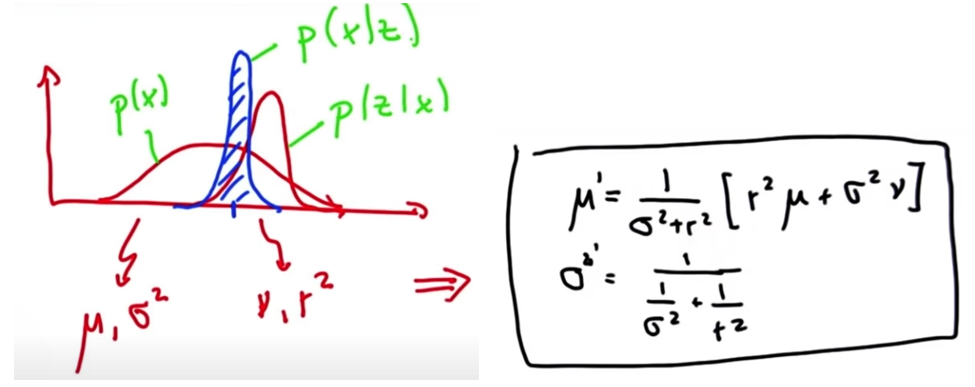 p(x|z)
p(x)
p(z|x)
μ, σ²
ν, r²
⇒
μ' = 1/(σ²+r²) [r² μ + σ² ν]
σ²' = 1/(1/σ² + 1/r²)